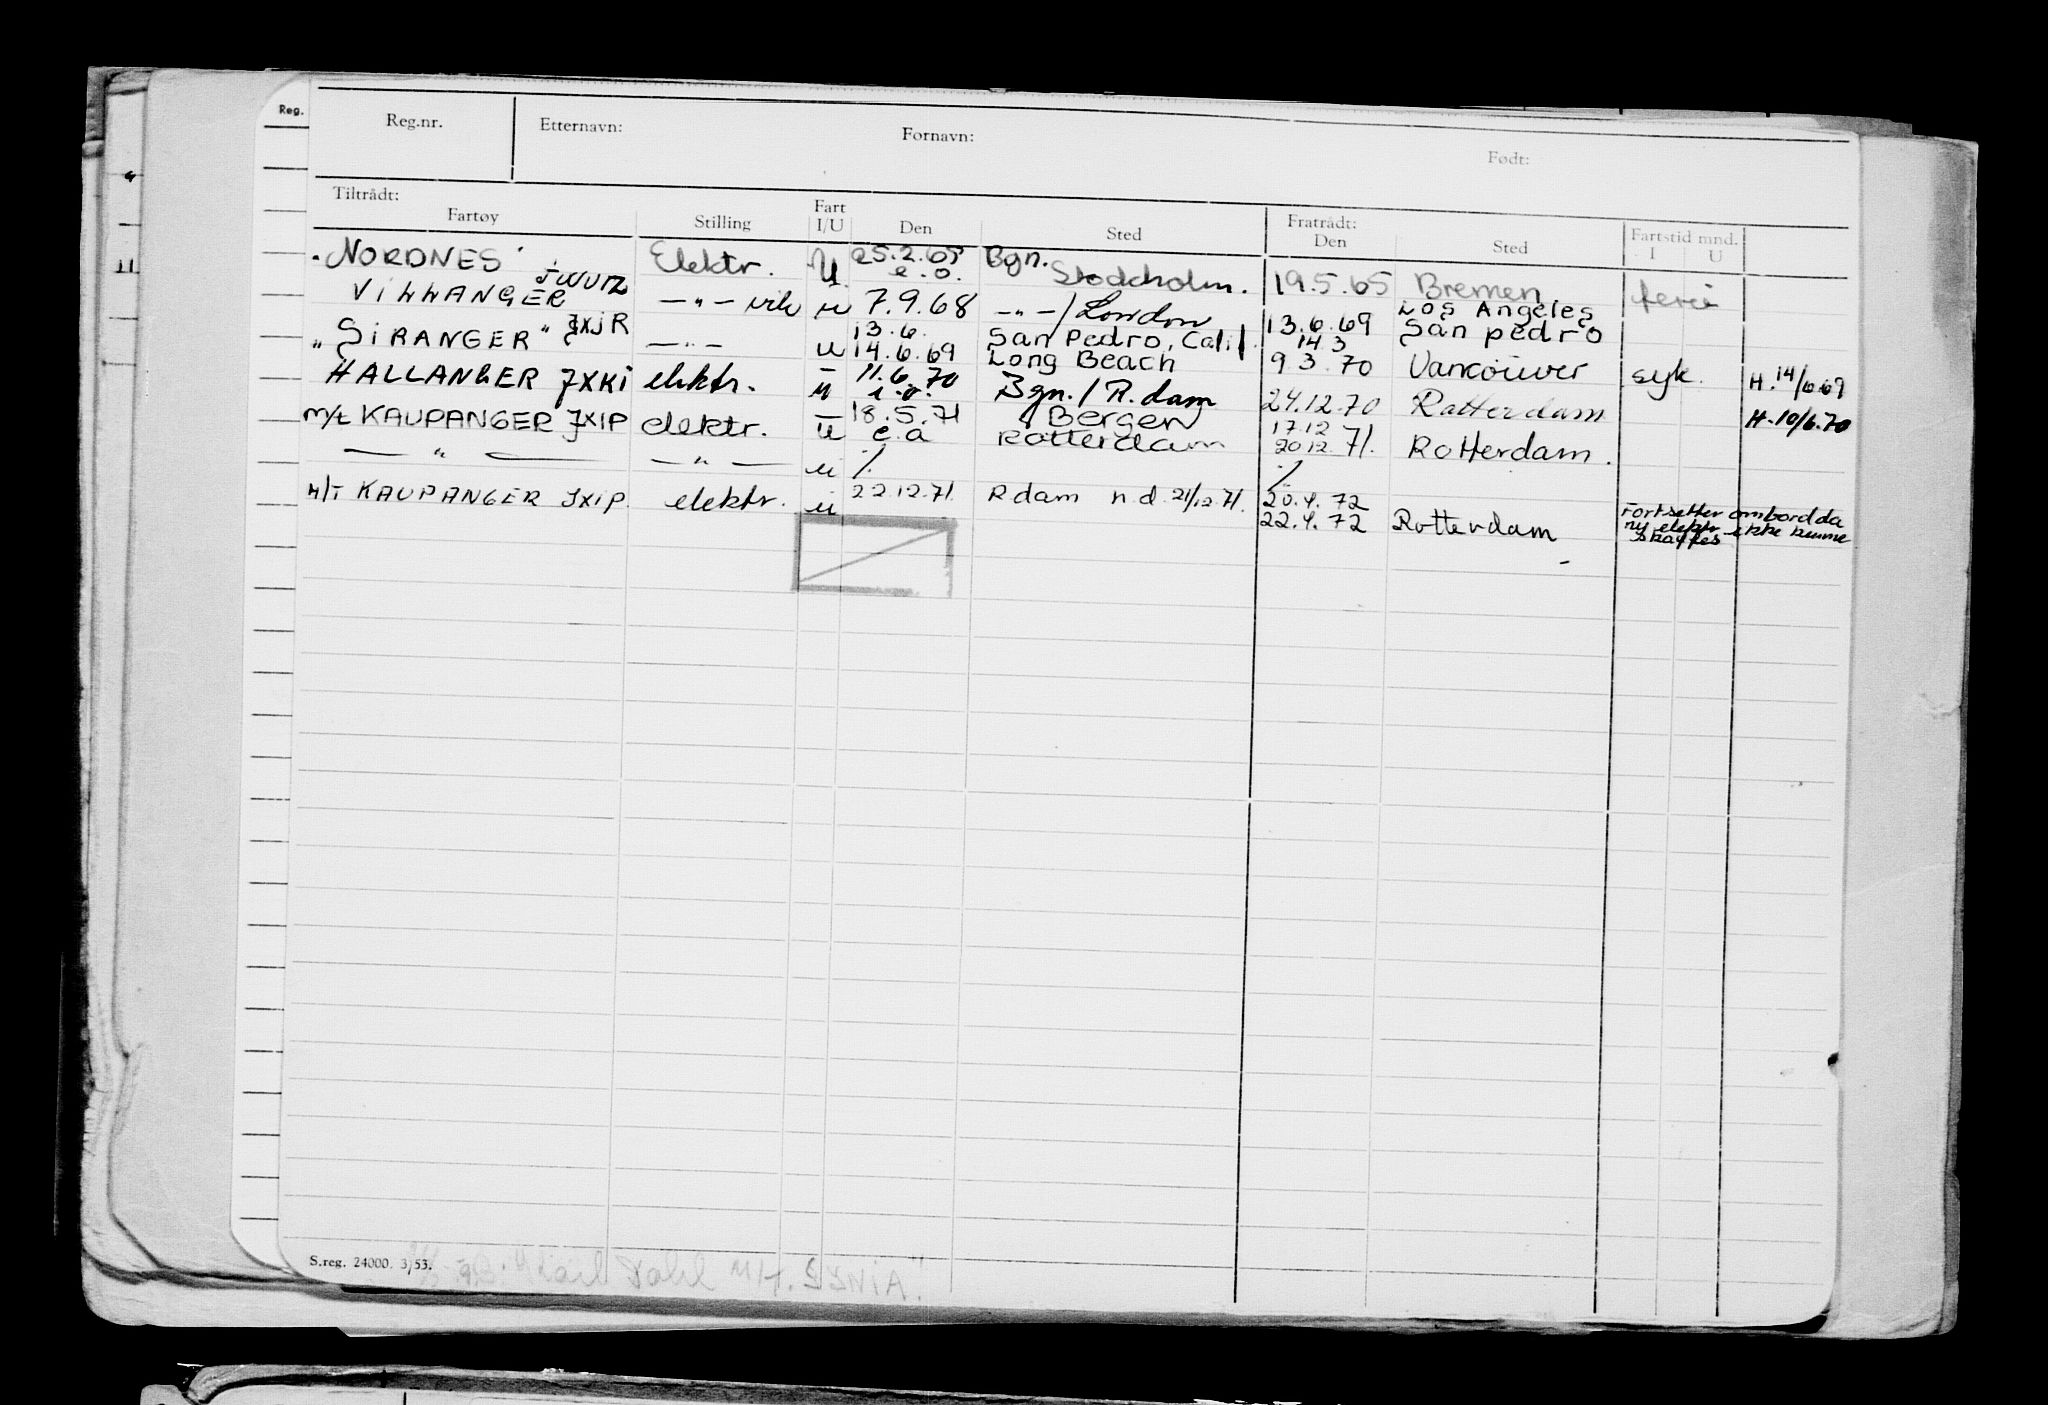 Reg.
Reg.nr. Etternavn: Fornavn: Født:
Tiltrådt: Fart Fratrådt: Fartstid mnd.
Fartøy Stilling I/U Den Sted Den Sted I U
"NORDNES" Elektr. U. 25.2.65 e.o. Bgn. Stockholm. 19.5.65 Bremen ferie
VILLANGER JWUTZ —"— vik u 7.9.68 —"—/London 13.6.69 Los Angeles San pedro
"SIRANGER" JXJR —"— u 13.6. 14.6.69 San Pedro, Calif. Long Beach 14.3 9.3.70 Vancouver syk. H. 14/6.69
HALLANGER JXKI elektr. u 11.6.70 e.o. Bgn./R.dam 24.12.70 Rotterdam H. 10/6.70
m/t KAUPANGER JXIP elektr. u 18.5.71 e.a Bergen Rotterdam 17.12 20.12.71. Rotterdam.
— " — — " — u % %
M/T KAUPANGER JXIP. elektr. u 22.12.71. Rdam n.d. 21/12.71. 20.4.72 22.4.72 Rotterdam Fortsetter ombord da ny elektr ikke kunne skaffes
S.reg. 24000. 3/53.
Dahl M/T.